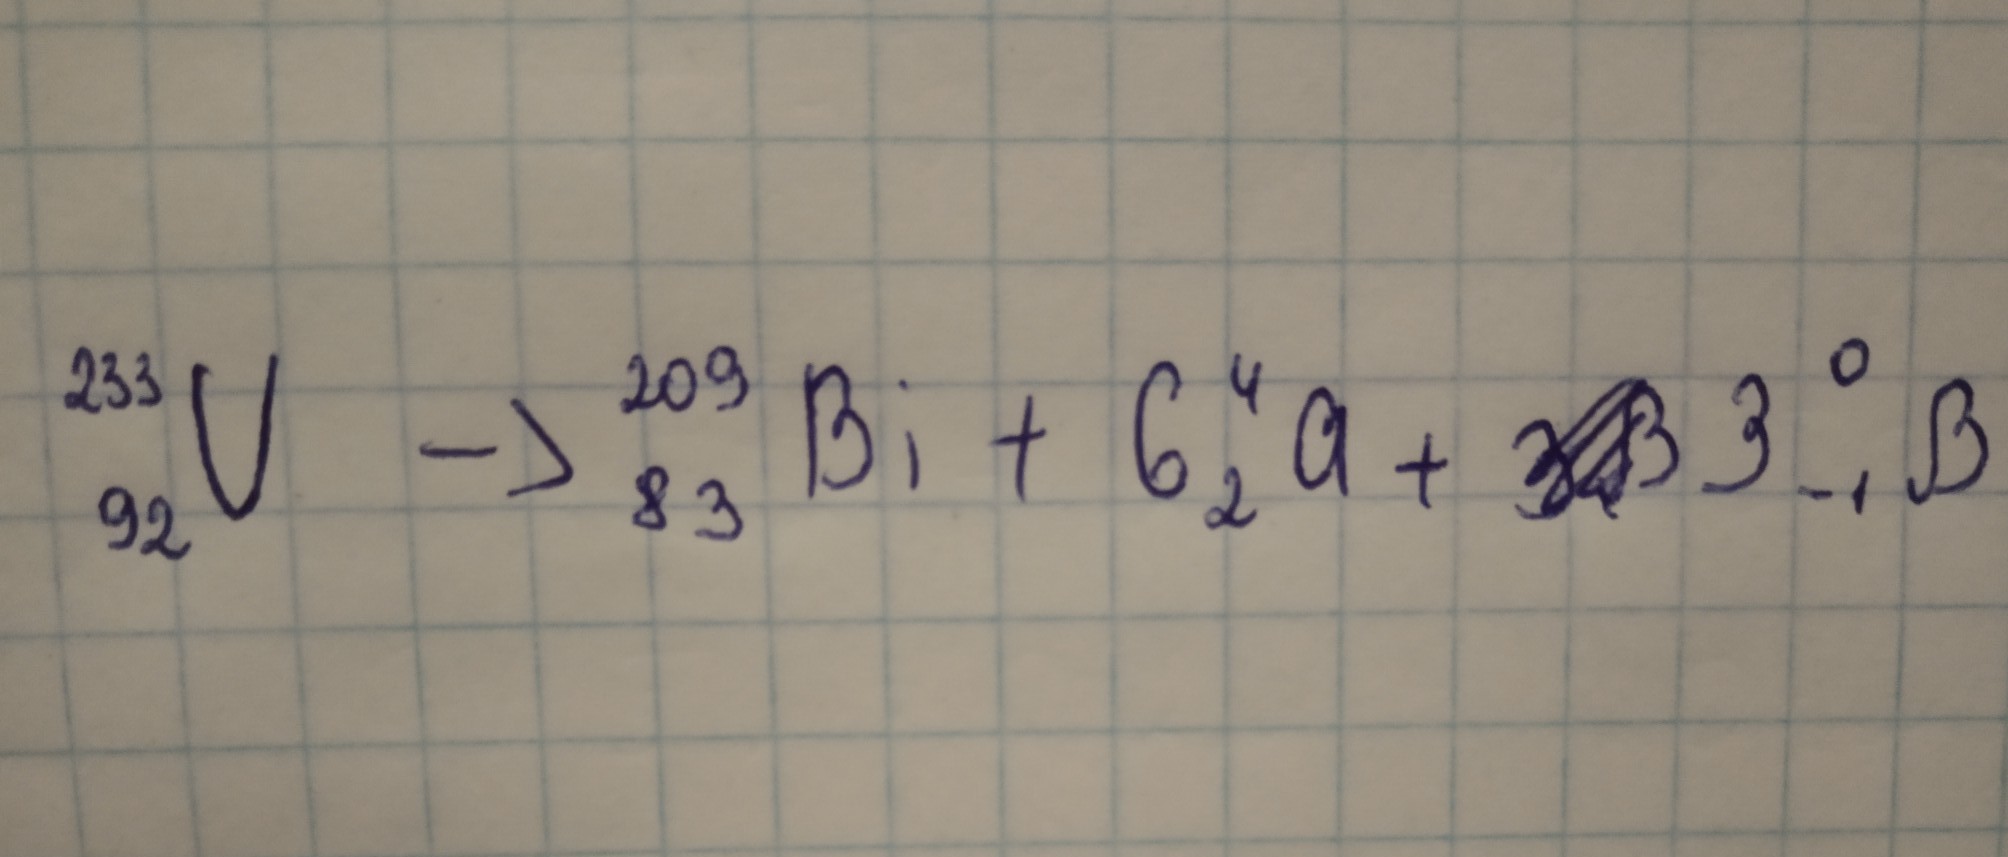 ²³³₉₂U -> ²⁰⁹₈₃Bi + 6 ⁴₂α + 3 ⁰₋₁β